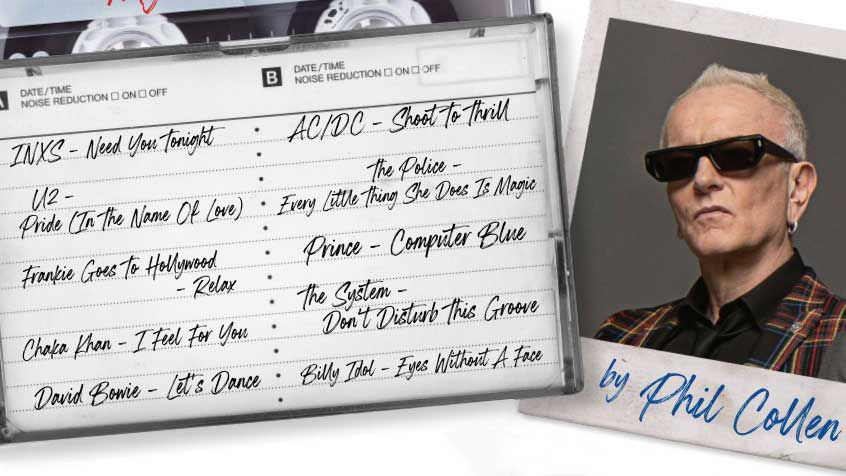 B
DATE/TIME
NOISE REDUCTION ☐ ON ☐ OFF
DATE/TIME
NOISE REDUCTION ☐ ON ☐ OFF
INXS - Need You Tonight
U2 -
Pride (In the Name Of Love)
Frankie Goes To Hollywood
- Relax
Chaka Khan - I Feel For You
David Bowie - Let's Dance
AC/DC - Shoot To Thrill
The Police -
Every Little Thing She Does Is Magic
Prince - Computer Blue
The System -
Don't Disturb This Groove
Billy Idol - Eyes Without A Face
by Phil Collen